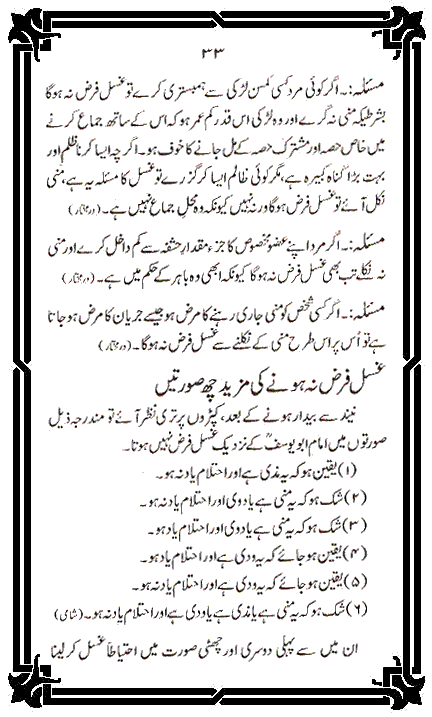 ۳۳
مسئلہ:۔ اگر کوئی مرد کسی کمسن لڑکی سے ہمبستری کرے تو غسل فرض نہ ہوگا
بشرطیکہ منی نہ گرے اور وہ لڑکی اس قدر کم عمر ہو کہ اس کے ساتھ جماع کرنے
میں خاص حصہ اور مشترک حصہ کے مل جانے کا خوف ہو۔ اگرچہ ایسا کرنا ظلم اور
بہت بڑا گناہ کبیرہ ہے، مگر کوئی ظالم ایسا کر گزرے تو غسل کا مسئلہ یہ ہے، منی
نکل آئے تو غسل فرض ہوگا ورنہ نہیں کیونکہ وہ محلِ جماع نہیں ہے۔ (درمختار)
مسئلہ:۔ اگر مرد اپنے عضو مخصوص کا جزء مقدارِ حشفہ سے کم داخل کرے اور منی
نہ نکلے تب بھی غسل فرض نہ ہوگا کیونکہ ابھی وہ باہر کے حکم میں ہے۔ (درمختار)
مسئلہ:۔ اگر کسی شخص کو منی جاری رہنے کا مرض ہو جیسے جریان کا مرض ہو جاتا
ہے تو اُس پر اس طرح منی کے نکلنے سے غسل فرض نہ ہوگا۔ (درمختار)
غسل فرض نہ ہونے کی مزید چھ صورتیں
نیند سے بیدار ہونے کے بعد، کپڑوں پر تری نظر آئے تو مندرجہ ذیل
صورتوں میں امام ابو یوسفؒ کے نزدیک غسل فرض نہیں ہوتا۔
(۱) یقین ہو کہ یہ مذی ہے اور احتلام یاد نہ ہو۔
(۲) شک ہو کہ یہ منی ہے یا ودی اور احتلام یاد نہ ہو۔
(۳) شک ہو کہ یہ منی ہے یا ودی اور احتلام یاد ہو۔
(۴) یقین ہو جائے کہ یہ ودی ہے اور احتلام یاد ہو۔
(۵) یقین ہو جائے کہ یہ ودی ہے اور احتلام یاد نہ ہو۔
(۶) شک ہو کہ یہ منی ہے یا مذی ہے یا ودی ہے اور احتلام یاد نہ ہو۔ (شامی)
ان میں سے پہلی دوسری اور چھٹی صورت میں احتیاطاً غسل کر لینا